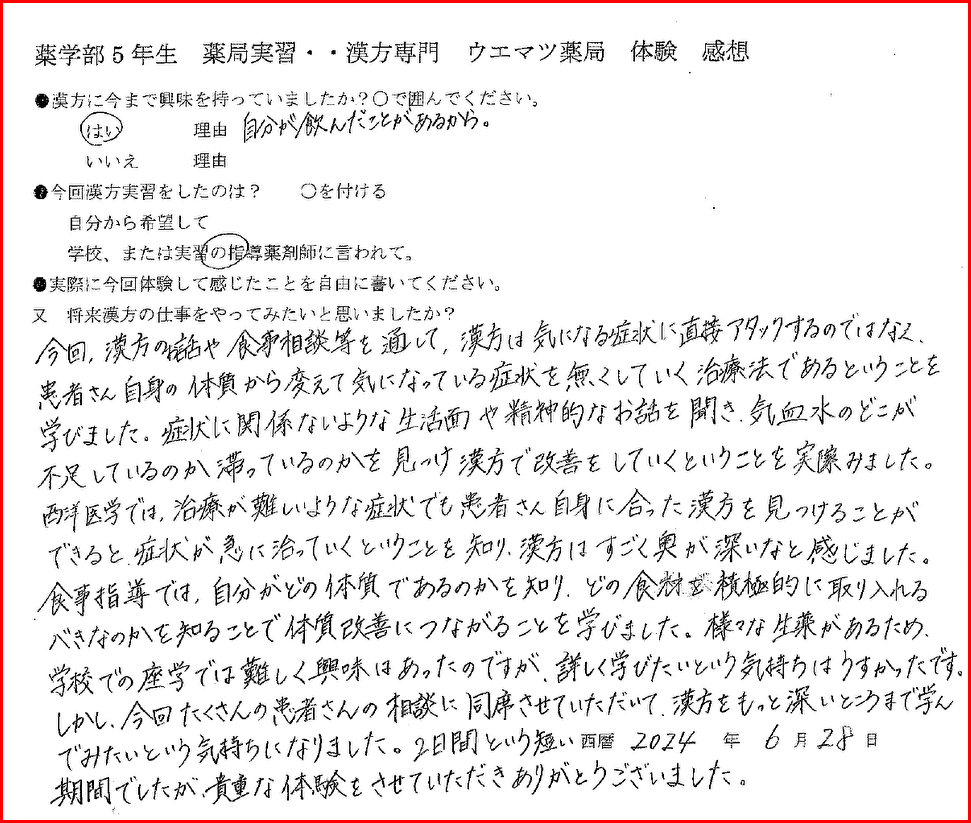 薬学部5年生　薬局実習・・漢方専門　ウエマツ薬局　体験　感想
●漢方に今まで興味を持っていましたか？〇で囲んでください。
はい　理由　自分が飲んだことがあるから。
いいえ　理由
●今回漢方実習をしたのは？　〇を付ける
自分から希望して
学校、または実習の指導薬剤師に言われて。
●実際に今回体験して感じたことを自由に書いてください。
又　将来漢方の仕事をやってみたいと思いましたか？
今回、漢方のお話や食事相談等を通して、漢方は気になる症状に直接アタックするのではなく、
患者さん自身の体質から変えて気になっている症状を無くしていく治療法であるということを
学びました。症状に関係ないような生活面や精神的なお話を聞き、気血水のどこが
不足しているのか滞っているのかを見つけ漢方で改善をしていくということを実際みました。
西洋医学では、治療が難しいような症状でも患者さん自身に合った漢方を見つけることが
できると、症状が急に治っていくということを知り、漢方はすごく奥が深いなと感じました。
食事指導では、自分がどの体質であるのかを知り、どの食材を積極的に取り入れる
べきなのかを知ることで体質改善につながることを学びました。様々な生薬があるため、
学校での座学では難しく興味はあったのですが、詳しく学びたいという気持ちはうすかったです。
しかし、今回たくさんの患者さんの相談に同席させていただいて、漢方をもっと深いところまで学ん
でみたいという気持ちになりました。2日間という短い　西暦 2024 年 6 月 28 日
期間でしたが、貴重な体験をさせていただきありがとうございました。